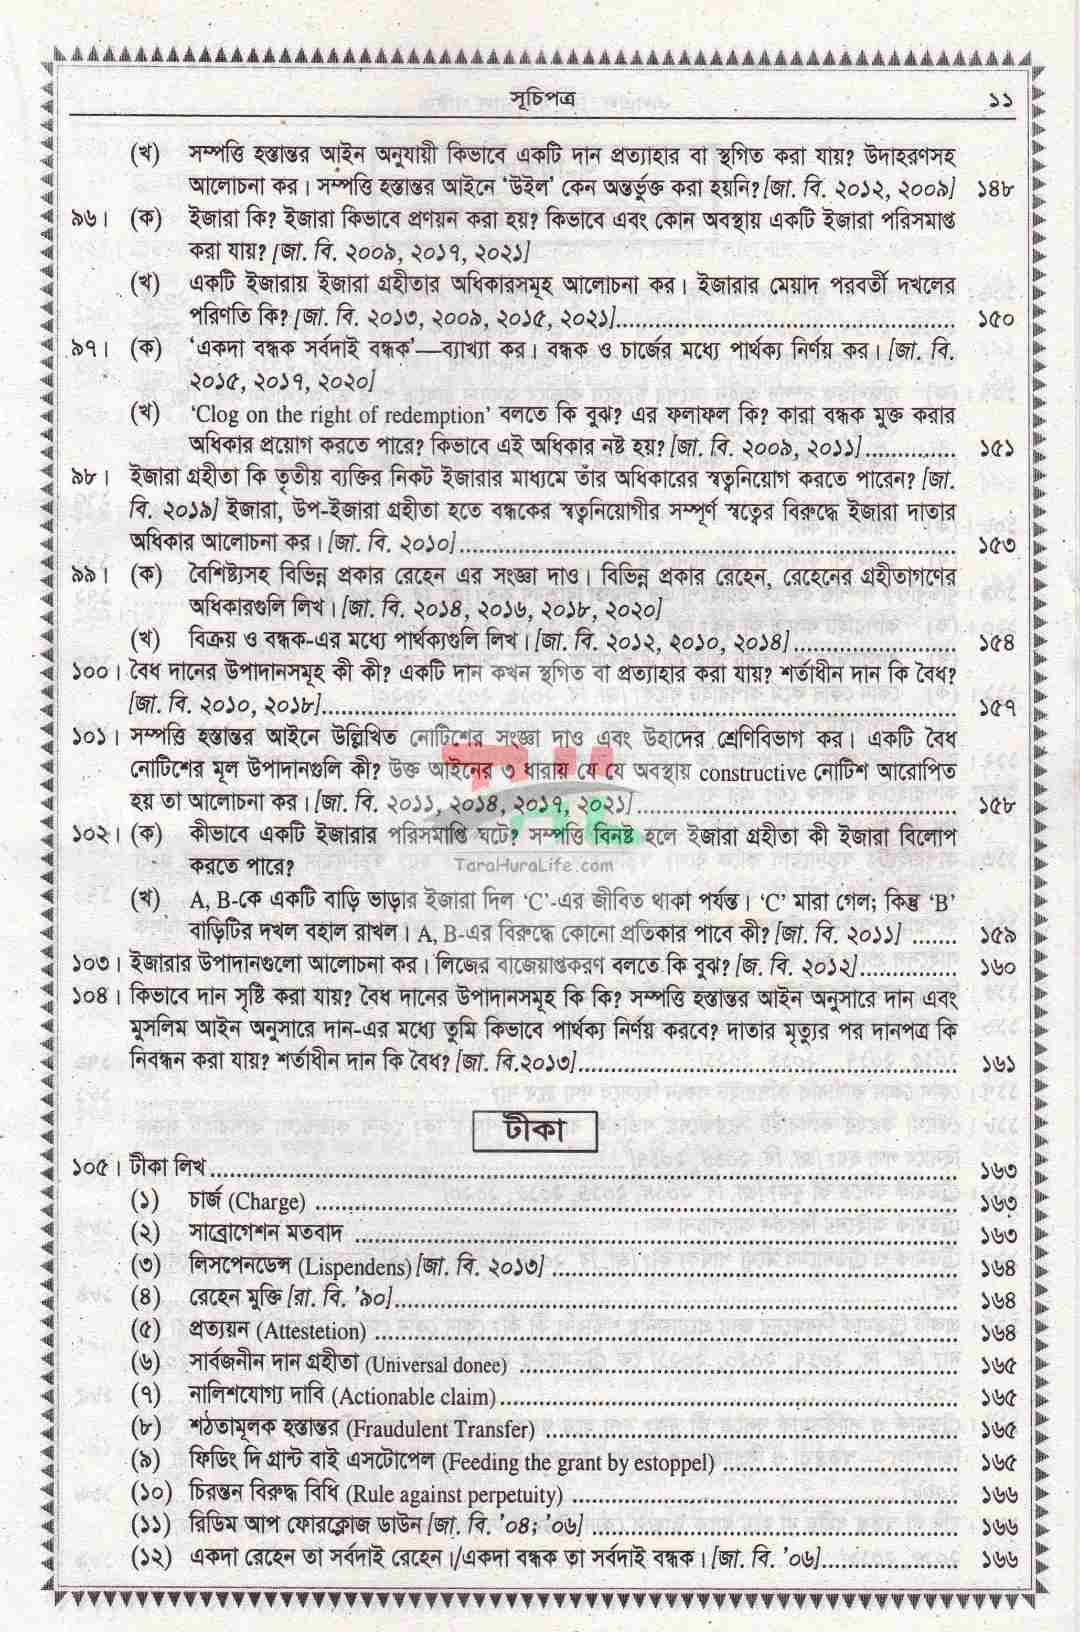 সূচিপত্র ১১
(খ) সম্পত্তি হস্তান্তর আইন অনুযায়ী কিভাবে একটি দান প্রত্যাহার বা স্থগিত করা যায়? উদাহরণসহ
আলোচনা কর। সম্পত্তি হস্তান্তর আইনে ‘উইল’ কেন অন্তর্ভুক্ত করা হয়নি? [জা. বি. ২০১২, ২০০৯] ১৪৮
৯৬। (ক) ইজারা কি? ইজারা কিভাবে প্রণয়ন করা হয়? কিভাবে এবং কোন অবস্থায় একটি ইজারা পরিসমাপ্ত
করা যায়? [জা. বি. ২০০৯, ২০১৭, ২০২১]
(খ) একটি ইজারায় ইজারা গ্রহীতার অধিকারসমূহ আলোচনা কর। ইজারার মেয়াদ পরবর্তী দখলের
পরিণতি কি? [জা. বি. ২০১৩, ২০০৯, ২০১৫, ২০২১]........ ১৫০
৯৭। (ক) ‘একদা বন্ধক সর্বদাই বন্ধক’—ব্যাখ্যা কর। বন্ধক ও চার্জের মধ্যে পার্থক্য নির্ণয় কর। [জা. বি.
২০১৫, ২০১৭, ২০২০]
(খ) ‘Clog on the right of redemption’ বলতে কি বুঝ? এর ফলাফল কি? কারা বন্ধক মুক্ত করার
অধিকার প্রয়োগ করতে পারে? কিভাবে এই অধিকার নষ্ট হয়? [জা. বি. ২০০৯, ২০১১]........ ১৫১
৯৮। ইজারা গ্রহীতা কি তৃতীয় ব্যক্তির নিকট ইজারার মাধ্যমে তাঁর অধিকারের স্বত্বনিয়োগ করতে পারেন? [জা.
বি. ২০১৯] ইজারা, উপ-ইজারা গ্রহীতা হতে বন্ধকের স্বত্বনিয়োগীর সম্পূর্ণ স্বত্বের বিরুদ্ধে ইজারা দাতার
অধিকার আলোচনা কর। [জা. বি. ২০১০]........ ১৫৩
৯৯। (ক) বৈশিষ্ট্যসহ বিভিন্ন প্রকার রেহেন এর সংজ্ঞা দাও। বিভিন্ন প্রকার রেহেন, রেহেনের গ্রহীতাগণের
অধিকারগুলি লিখ। [জা. বি. ২০১৪, ২০১৬, ২০১৮, ২০২০]
(খ) বিক্রয় ও বন্ধক-এর মধ্যে পার্থক্যগুলি লিখ। [জা. বি. ২০১২, ২০১০, ২০১৪]........ ১৫৪
১০০। বৈধ দানের উপাদানসমূহ কী কী? একটি দান কখন স্থগিত বা প্রত্যাহার করা যায়? শর্তাধীন দান কি বৈধ?
[জা. বি. ২০১০, ২০১৮]........ ১৫৭
১০১। সম্পত্তি হস্তান্তর আইনে উল্লিখিত নোটিশের সংজ্ঞা দাও এবং উহাদের শ্রেণিবিভাগ কর। একটি বৈধ
নোটিশের মূল উপাদানগুলি কী? উক্ত আইনের ৩ ধারায় যে যে অবস্থায় constructive নোটিশ আরোপিত
হয় তা আলোচনা কর। [জা. বি. ২০১১, ২০১৪, ২০১৭, ২০২১]........ ১৫৮
১০২। (ক) কীভাবে একটি ইজারার পরিসমাপ্তি ঘটে? সম্পত্তি বিনষ্ট হলে ইজারা গ্রহীতা কী ইজারা বিলোপ
করতে পারে?
TaraHuraLife.com
(খ) A, B-কে একটি বাড়ি ভাড়ার ইজারা দিল ‘C’-এর জীবিত থাকা পর্যন্ত। ‘C’ মারা গেল; কিন্তু ‘B’
বাড়িটির দখল বহাল রাখল। A, B-এর বিরুদ্ধে কোনো প্রতিকার পাবে কী? [জা. বি. ২০১১] ....... ১৫৯
১০৩। ইজারার উপাদানগুলো আলোচনা কর। লিজের বাজেয়াপ্তকরণ বলতে কি বুঝ? [জ. বি. ২০১২]........ ১৬০
১০৪। কিভাবে দান সৃষ্টি করা যায়? বৈধ দানের উপাদানসমূহ কি কি? সম্পত্তি হস্তান্তর আইন অনুসারে দান এবং
মুসলিম আইন অনুসারে দান-এর মধ্যে তুমি কিভাবে পার্থক্য নির্ণয় করবে? দাতার মৃত্যুর পর দানপত্র কি
নিবন্ধন করা যায়? শর্তাধীন দান কি বৈধ? [জা. বি.২০১৩]........ ১৬১
টীকা
১০৫। টীকা লিখ........ ১৬৩
(১) চার্জ (Charge) ........ ১৬৩
(২) সাব্রোগেশন মতবাদ ........ ১৬৩
(৩) লিসপেনডেন্স (Lispendens) [জা. বি. ২০১৩]........ ১৬৪
(৪) রেহেন মুক্তি [রা. বি. ’৯০]........ ১৬৪
(৫) প্রত্যয়ন (Attestetion) ........ ১৬৪
(৬) সার্বজনীন দান গ্রহীতা (Universal donee) ........ ১৬৫
(৭) নালিশযোগ্য দাবি (Actionable claim)........ ১৬৫
(৮) শঠতামূলক হস্তান্তর (Fraudulent Transfer) ........ ১৬৫
(৯) ফিডিং দি গ্রান্ট বাই এসটোপেল (Feeding the grant by estoppel) ........ ১৬৫
(১০) চিরন্তন বিরুদ্ধ বিধি (Rule against perpetuity) ........ ১৬৬
(১১) রিডিম আপ ফোরক্লোজ ডাউন [জা. বি. ’০৪; ’০৬]........ ১৬৬
(১২) একদা রেহেন তা সর্বদাই রেহেন।/একদা বন্ধক তা সর্বদাই বন্ধক। [জা. বি. ’০৬]........ ১৬৬